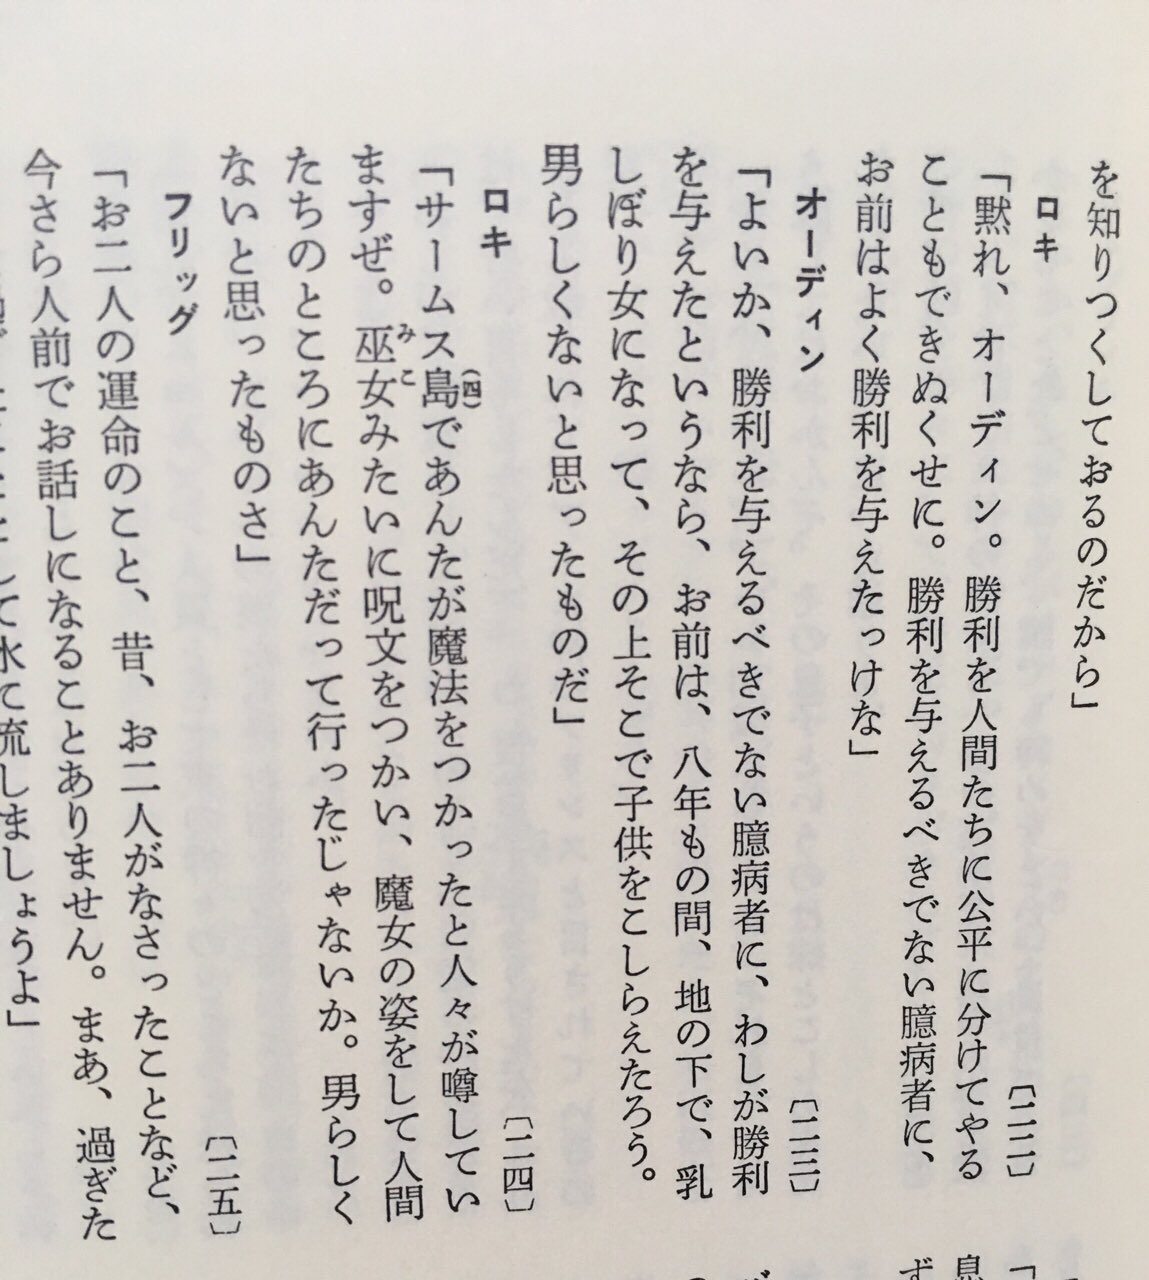 を知りつくしておるのだから」
ロキ
〔二二〕
「黙れ、オーディン。勝利を人間たちに公平に分けてやる
こともできぬくせに。勝利を与えるべきでない臆病者に、
お前はよく勝利を与えたっけな」
オーディン
〔二三〕
「よいか、勝利を与えるべきでない臆病者に、わしが勝利
を与えたというなら、お前は、八年もの間、地の下で、乳
しぼり女になって、その上そこで子供をこしらえたろう。
男らしくないと思ったものだ」
ロキ
〔二四〕
「サームス島(四)であんたが魔法をつかったと人々が噂してい
ますぜ。巫女みこみたいに呪文をつかい、魔女の姿をして人間
たちのところにあんただって行ったじゃないか。男らしく
ないと思ったものさ」
フリッグ
〔二五〕
「お二人の運命のこと、昔、お二人がなさったことなど、
今さら人前でお話しになることありません。まあ、過ぎた
して水に流しましょうよ」